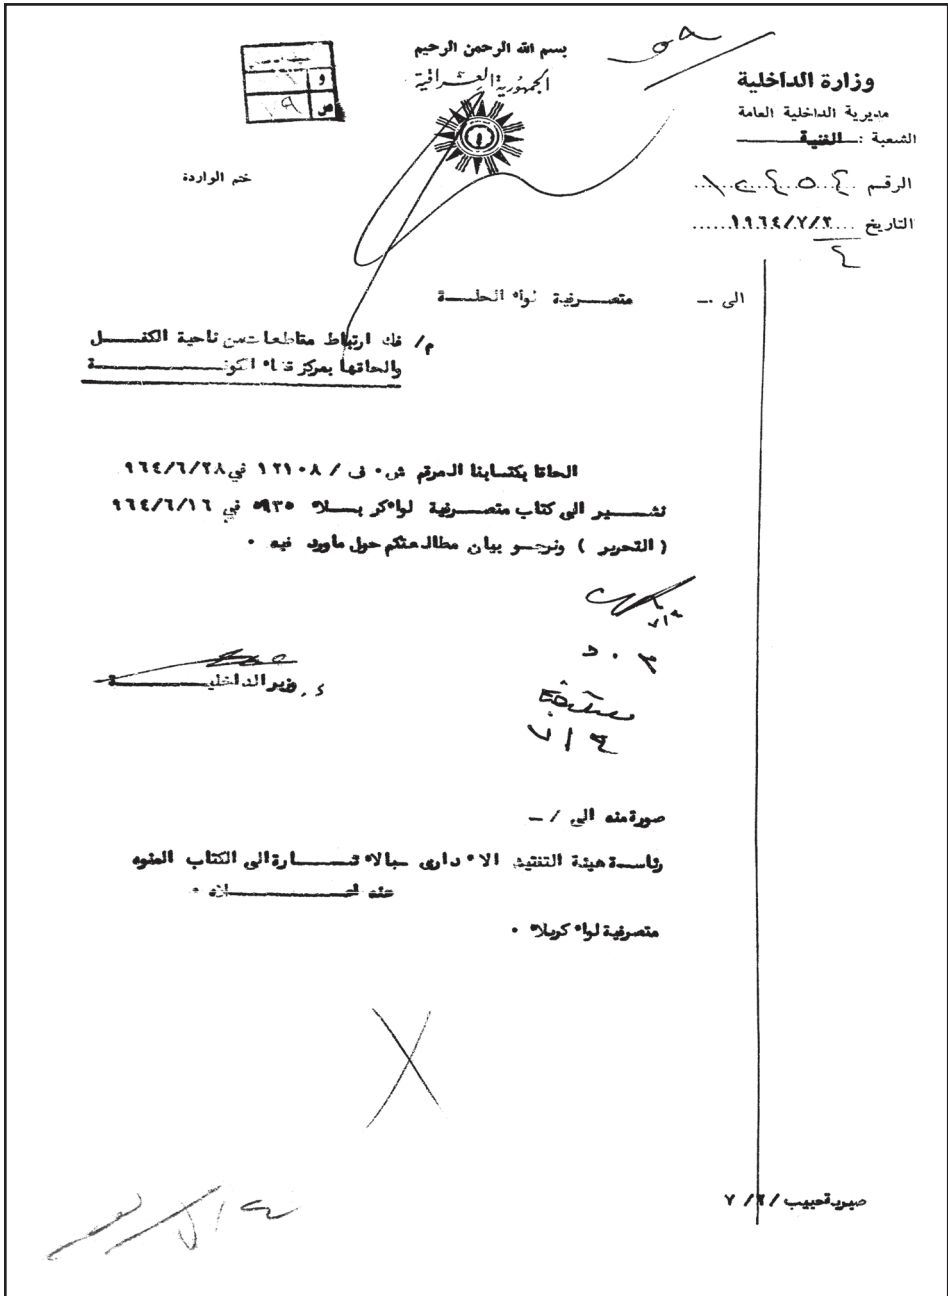 بسم الله الرحمن الرحيم
الجمهورية العراقية
وزارة الداخلية
مديرية الداخلية العامة
الشعبة : الفنية
الرقم ١٢٤٥٤
التاريخ ١٩٦٤/٧/٢
٤
و
ص ٧٩
ختم الواردة
٥٩
الى .ــ متصــرفية لواء الحلــة
م/ فك ارتباط مقاطعات من ناحية الكفــل
والحاقها بمركز قضاء الكوفــة
الحاقا بكتسابنا المرقم ش٠ ف / ١٢١٠٨ في ٩٦٤/٦/٢٨
نشــير الى كتاب متصــرفية لواء كربــلاء ٥٩٣٥ في ٩٦٤/٦/١٦
( التحرير ) ونرجــو بيان مطالعتكم حول ماورد فيه ٠
٧/٤
ع. وزير الداخليــة
٧/٤
صورة منه الى / ــ
رئاســة هيئة التفتيش الاداري ــ بالاشــارة الى الكتاب المنوه
عنه اعــلاه ٠
متصرفية لواء كربلاء ٠
صبرية حبيب /٢/ ٧
٧/٤